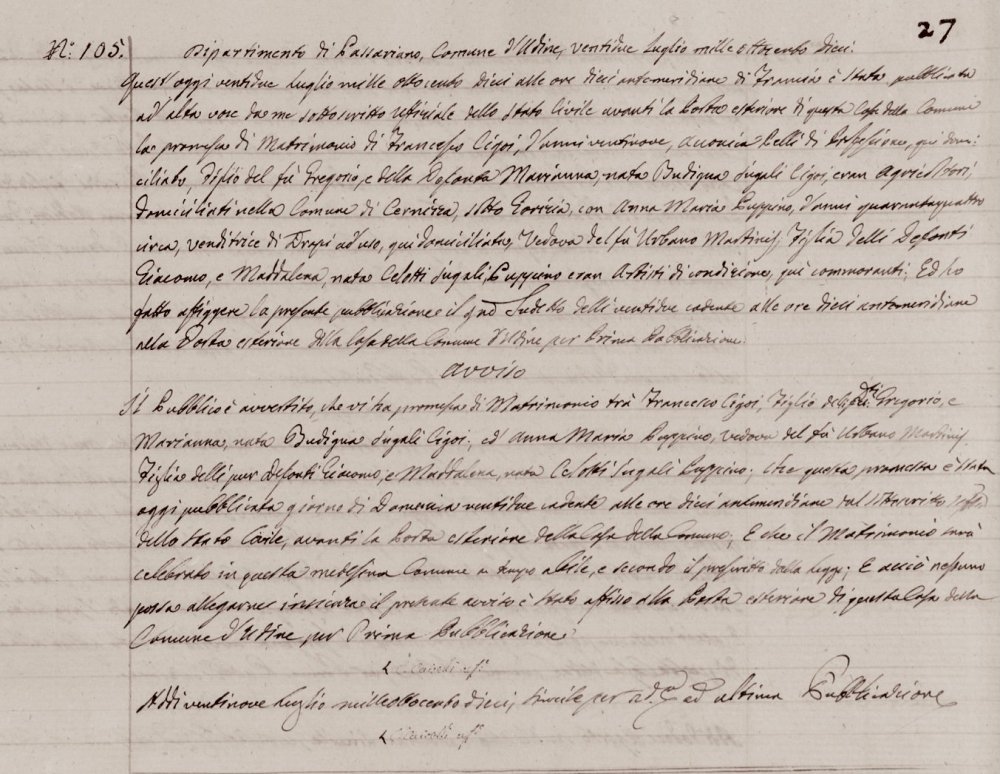 27
N.º 105.
Dipartimento di Passariano, Comune d'Udine, ventidue Luglio mille ottocento dieci.
Quest'oggi ventidue Luglio mille ottocento dieci alle ore dieci antemeridiane di Francia è stata pubblicata
ad alta voce da me sottoscritto Uffiziale dello Stato Civile avanti la Porta esteriore di questa Casa della Comune
la promessa di Matrimonio di Francesco Cigoi, d'anni ventinove, di Professione, qui domi:
ciliato, Figlio del fù Gregorio, e della Defonta Marianna, nata Budigna Jugali Cigoi, eran Agricoltori,
domiciliati nella Comune di Cernizza, sotto Gorizia, con Anna Maria Puppino, d'anni quarantaquattro
circa, venditrice di Drapi ad uso, qui domiciliata, Vedova del fù Urbano Martinis, Figlia delli Defonti
Giacomo, e Maddalena, nata Celotti Jugali Puppino eran Artisti di condizione, qui commoranti. Ed ho
fatto affiggere la presente pubblicazione il Sudetto delli ventidue cadente alle ore dieci antemeridiane
nella Porta esteriore della Casa della Comune d'Udine per Prima Pubblicazione.
Avviso
Il Pubblico è avvertito, che vi ha promessa di Matrimonio trà Francesco Cigoi, Figlio delli Dti. Gregorio, e
Marianna, nata Budigna Jugali Cigoi; ed Anna Maria Puppino, vedova del fù Urbano Martinis,
Figlia delli pur Defonti Giacomo, e Maddalena, nata Celotti Jugali Puppino; che questa promessa è stata
oggi pubblicata giorno di Domenica ventidue cadente alle ore dieci antimeridiane dal sottoscritto Uffle.
dello Stato Civile, avanti la Porta esteriore della Casa della Comune; E che il Matrimonio sarà
celebrato in questa medesima Comune a tempo abile, e secondo il prescritto dalla Legge; E acciò nessuno
possa allegarne insienza il presente avviso è stato affisso alla Porta esteriore di questa Casa della
Comune d'Udine, per Prima Pubblicazione.
Addì ventinove Luglio mille ottocento dieci, simile per 2.da ed ultima Pubblicazione